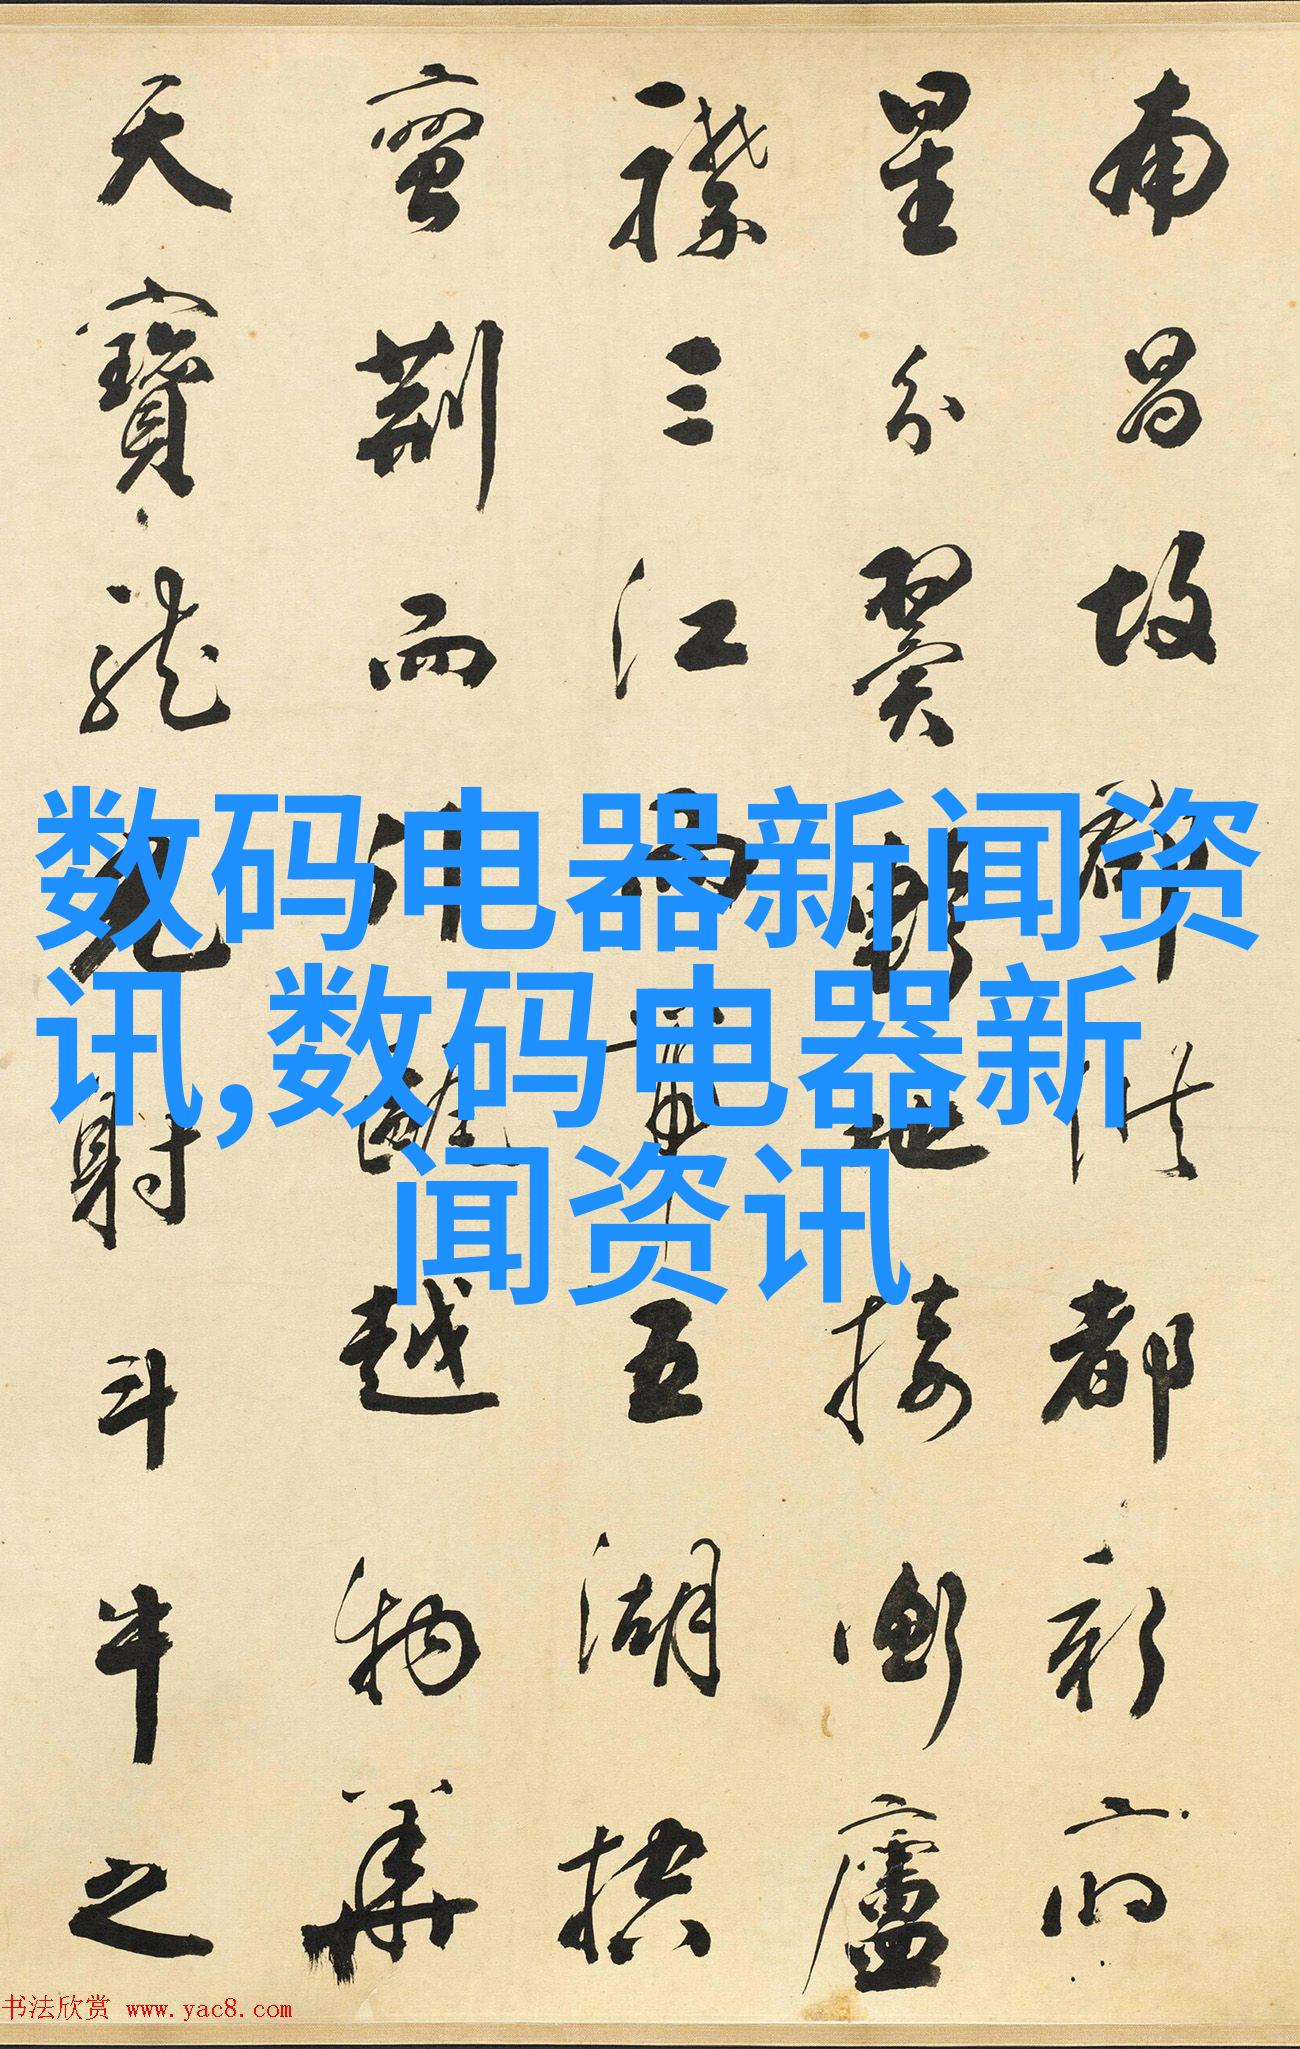 南昌故郡洪都新府
星分翼軫地接衡廬
襟三江而帶五湖控
蠻荊而引甌越物華
天寶龍光射斗牛之
数码电器新闻资
讯,数码电器新
闻资讯
书法欣赏 www.yac8.com